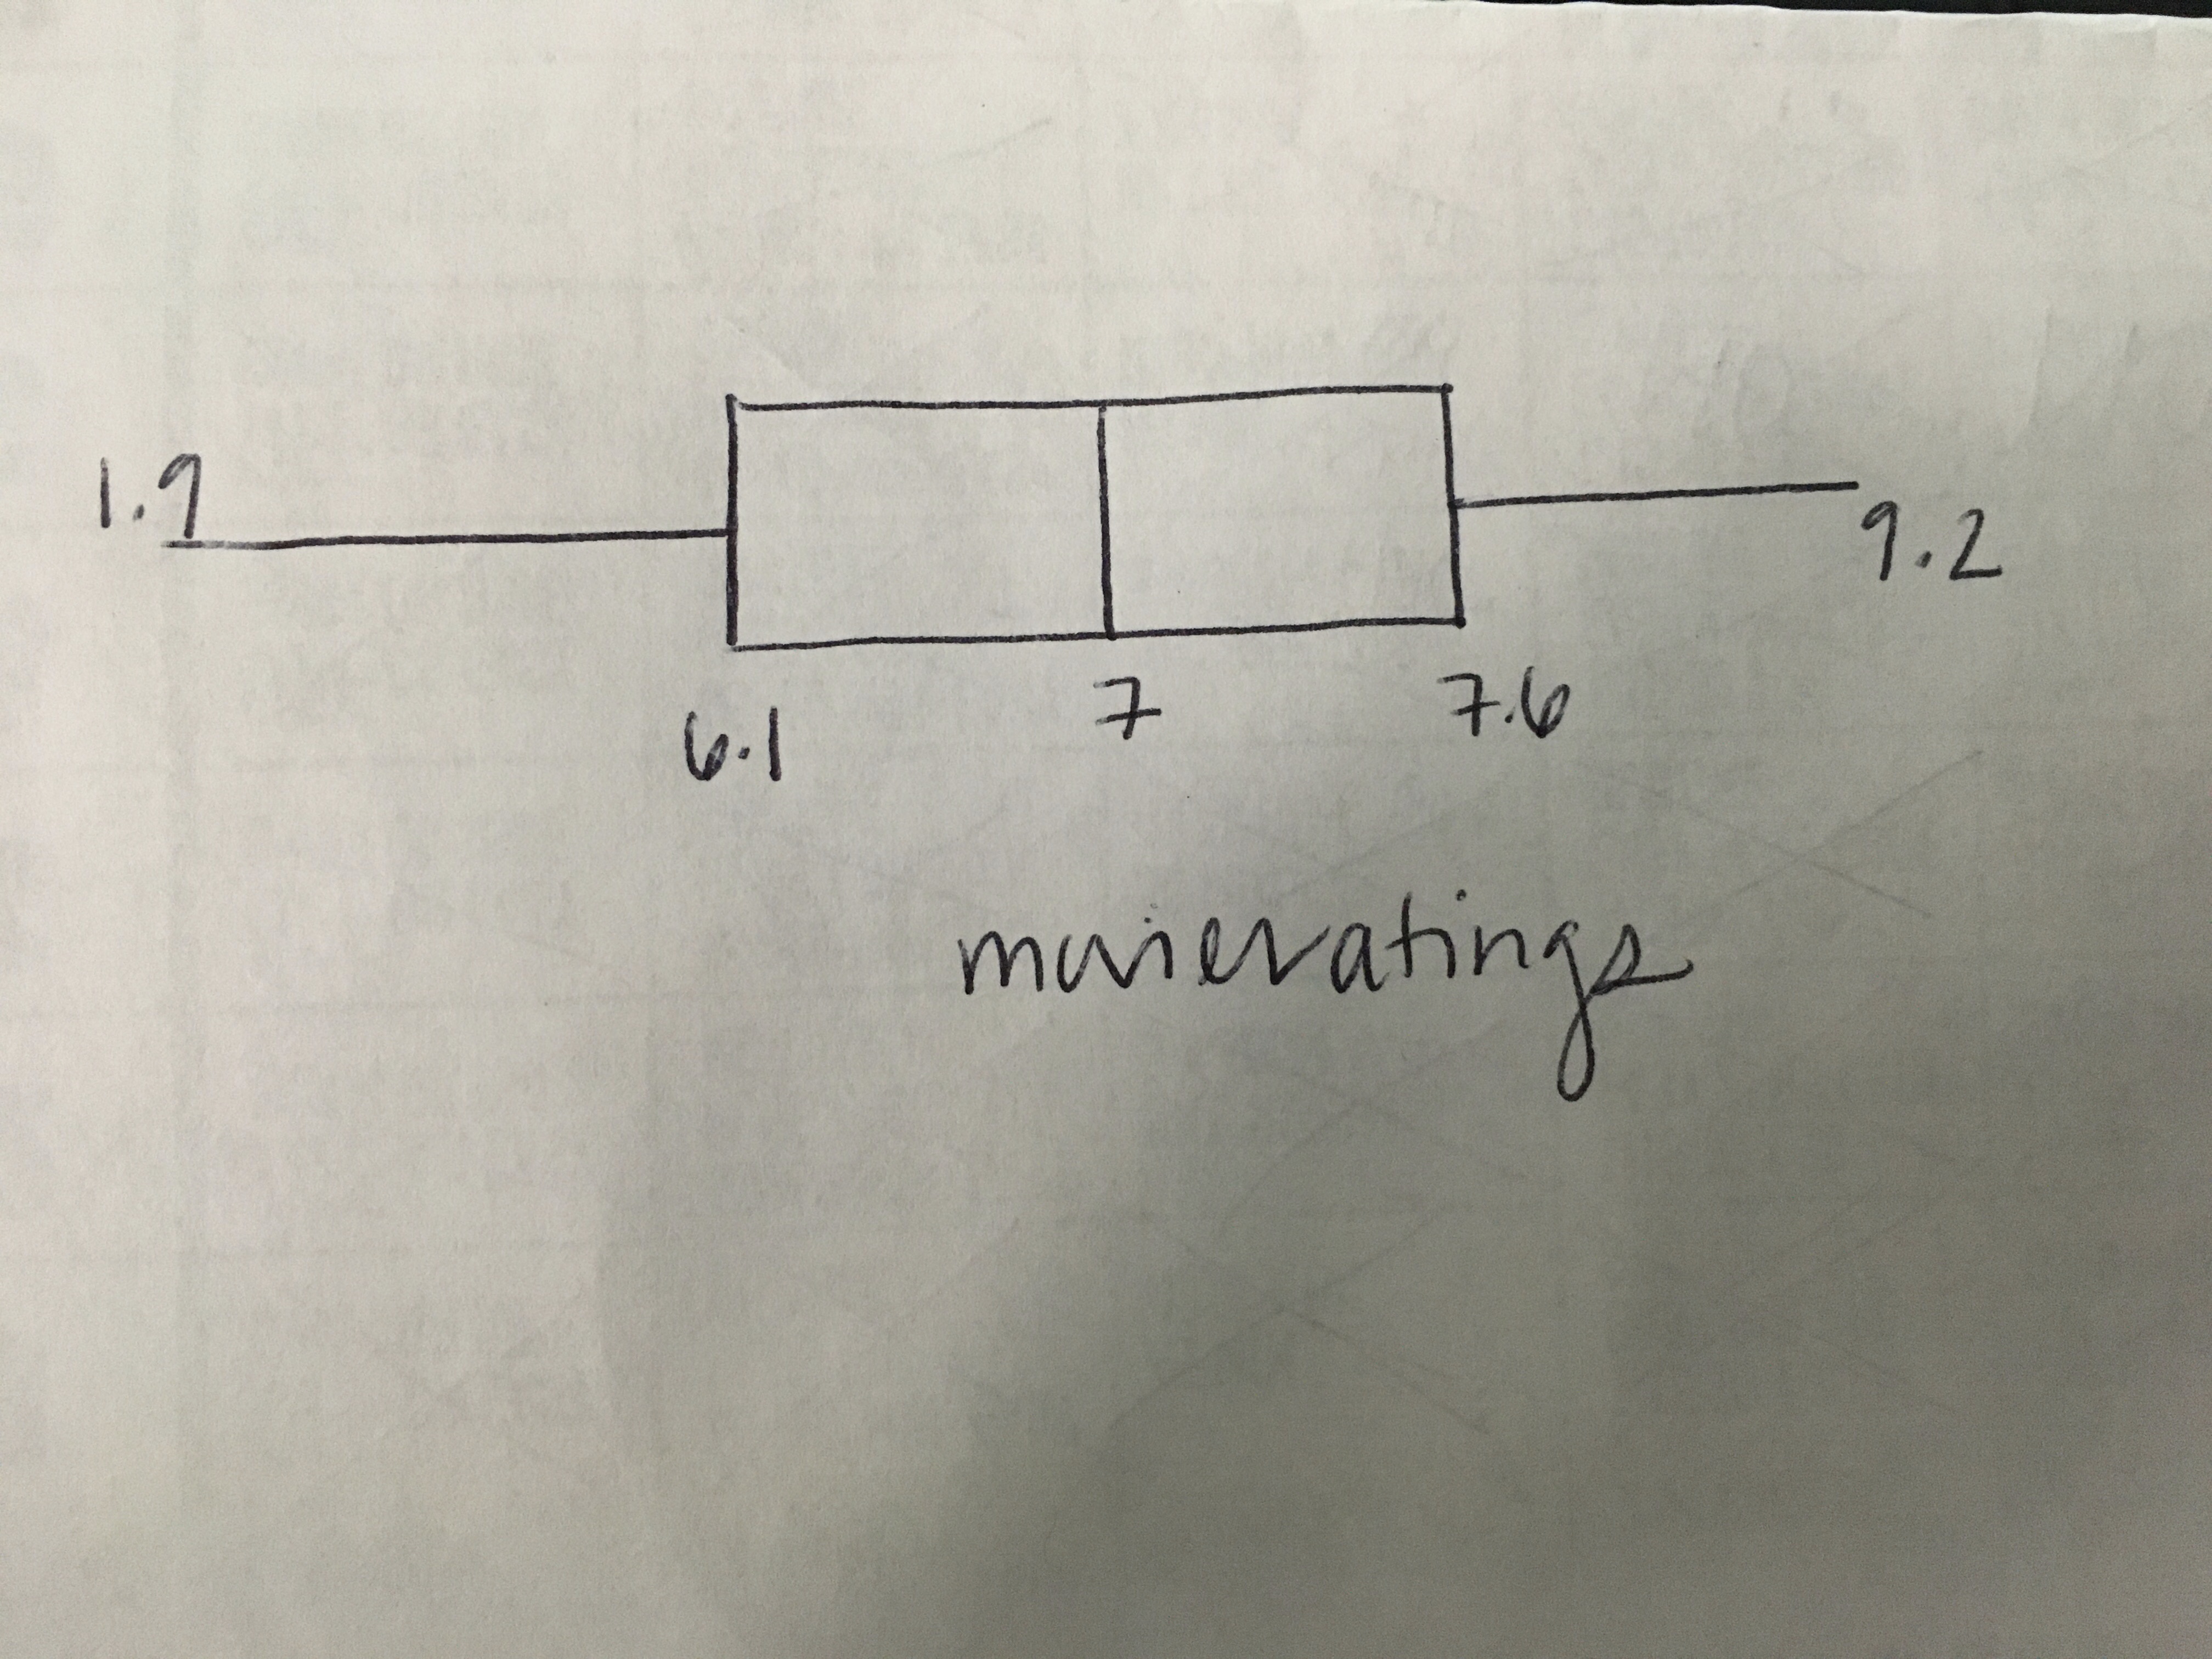 1.9
9.2
6.1 7 7.6
movieratings